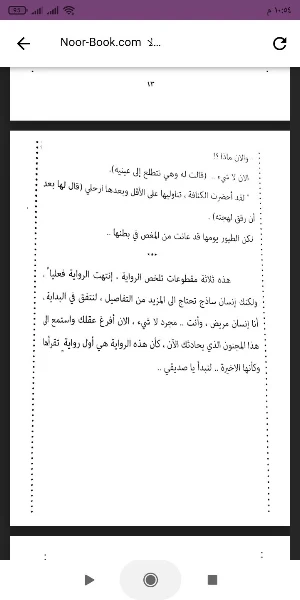 ١٠:٥٤ م
93
Noor-Book.com لا...
١٣
والان ماذا ؟!
الان لا شيء .. (قالت له وهي تتطلع إلى عينيه).
" لقد أحضرت الكنافة ، تناوليها على الأقل وبعدها ارحلي (قال لها بعد
أن رفق لهجته) .
لكن الطيور يومها قد عانت من المغص في بطنها ..
***
هذه ثلاثة مقطوعات تلخص الرواية ، إنتهت الرواية فعلياً ،
ولكنك إنسان ساذج تحتاج الى المزيد من التفاصيل ، لنتفق في البداية ،
أنا إنسان مريض ، وأنت .. مجرد لا شيء ، الان أفرغ عقلك واستمع الى
هذا المجنون الذي يحادثك الآن ، كأن هذه الرواية هي أول رواية تقرأها
وكأنها الاخيرة .. لنبدأ يا صديقي ..